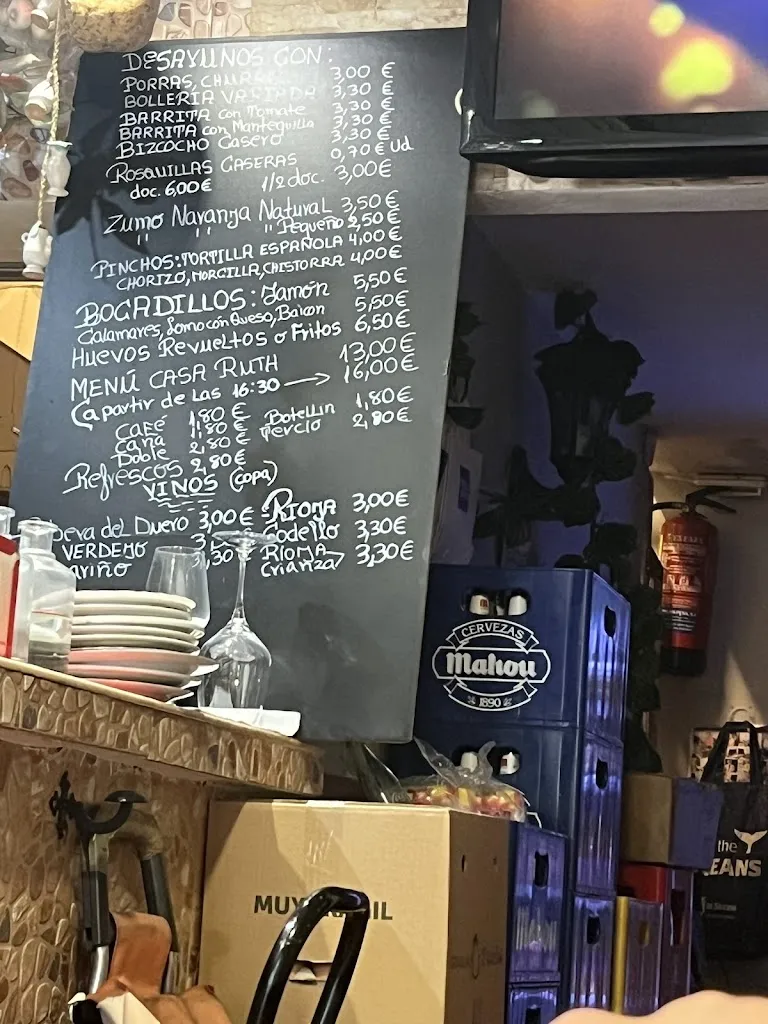 DESAYUNOS CON:
PORRAS, 3,00 €
BOLLERÍA 3,30 €
BARRITA con Tomate 3,30 €
BARRITA con Mantequilla 3,30 €
BIZCOCHO Casero 3,30 €
ROSQUILLAS CASERAS 0,70 € Ud
doc. 6,00 € 1/2 doc. 3,00 €
Zumo Naranja Natural 3,50 €
" " " Pequeño 2,50 €
PINCHOS: TORTILLA ESPAÑOLA 4,00 €
CHORIZO, MORCILLA, CHISTORRA 4,00 €
BOCADILLOS: Jamón 5,50 €
Calamares, Lomo con Queso, Bacon 5,50 €
Huevos Revueltos o Fritos 6,50 €
MENÚ CASA RUTH 13,00 €
(a partir de las 16:30 → 16,00 €
CAFÉ 1,80 € Botellin 1,80 €
caña 1,80 € Tercio 2,80 €
Doble 2,80 €
Refrescos 2,80 €
VINOS (copa)
del Duero 3,00 € RIOJA 3,00 €
VERDEJO Godello 3,30 €
,30 € RIOJA Crianza 3,30 €
CERVEZAS
Mahou
1890
MUY
IL
the
EANS